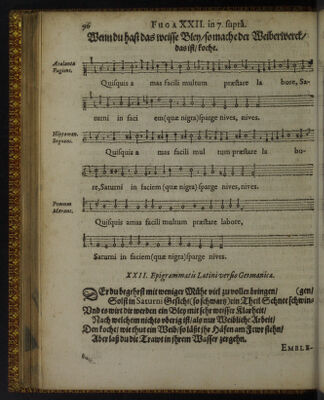 96 FUGA XXII. in 7. suprà.
Wenn du hast das weisse Bley/so mache der Weiberwerck/
das ist/koche.
Atalanta
Fugiens.
Quisquis a mas facili multum præstare la bore, Sa-
turni in faci em(quæ nigra)sparge nives, nives.
Hippomen.
Sequens.
Quisquis a mas facili mul tum præstare la bo-
re, Saturni in faciem (quæ nigra) sparge nives, nives.
Pomum
Morans.
Quisquis amas facili multum præstare labore,
Saturni in faciem(quæ nigra)sparge nives.
XXII. Epigrammatis Latini versio Germanica.
DEr du begehrst mit weniger Mühe viel zu vollenbringen/ (gen/
Solst in Saturni Gesicht(so schwartz)ein Theil Schnee schwin-
Und es wirt dir werden ein Bley mit sehr weisser Klarheit/
Nach welchem nichts überig ist/als nur Weibliche Arbeit/
Den koche/wie thut ein Weib/so läst ihr Häfen am Fewr stehn/
Aber laß du die Trawt in ihrem Wasser zergehn.
EMBLE-